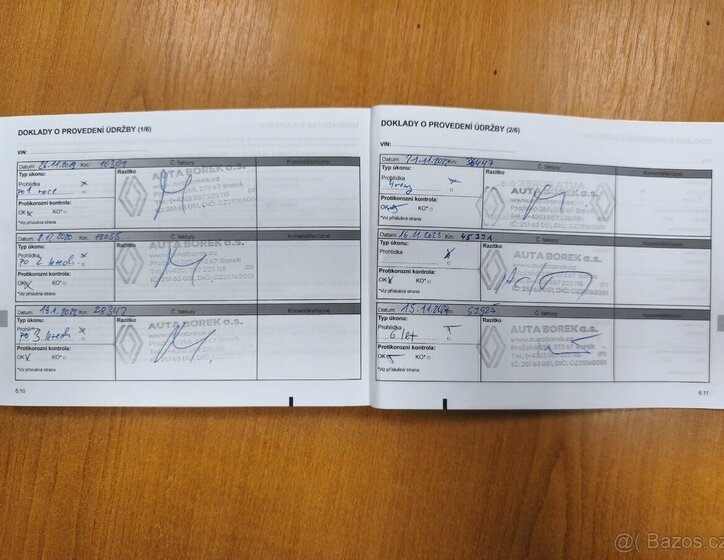 DOKLADY O PROVEDENÍ ÚDRŽBY (1/6)
VIN:
Datum: 26.11.2019 Km: 10301 Č. faktury Komentáře/různé
Typ úkonu: Razítko
Prohlídka x
po 1 roce □
AUTA BOREK a.s.
Protikorozní kontrola:
OK x KO* □
*Viz příslušná strana
Datum: 8.12.2020 Km: 18035 Č. faktury Komentáře/různé
Typ úkonu: Razítko
Prohlídka x
po 2 letech □
AUTA BOREK a.s.
www.autaborek.cz
Protikorozní kontrola:
OK x KO* □
*Viz příslušná strana
Datum: Km: 28347 Č. faktury Komentáře/různé
Typ úkonu: Razítko
Prohlídka x
po 3 letech □
AUTA BOREK a.s.
www.autaborek.cz
Protikorozní kontrola:
OK KO* □
*Viz příslušná strana
6.10
DOKLADY O PROVEDENÍ ÚDRŽBY (2/6)
VIN:
Datum: Km: Č. faktury Komentáře/různé
Typ úkonu: Razítko
Prohlídka x
4 roky □
AUTA BOREK a.s.
Protikorozní kontrola:
OK KO* □
*Viz příslušná strana
Datum: 16.11.2023 Km: 45391 Č. faktury Komentáře/různé
Typ úkonu: Razítko
Prohlídka x
AUTA BOREK a.s.
Protikorozní kontrola:
OK x KO* □
*Viz příslušná strana
Datum: 15.11.2024 Km: 53525 Č. faktury Komentáře/různé
Typ úkonu: Razítko
Prohlídka
6 let □
AUTA BOREK a.s.
www.autaborek.cz
Protikorozní kontrola:
OK KO* □
*Viz příslušná strana
6.11
@ Bazos.cz